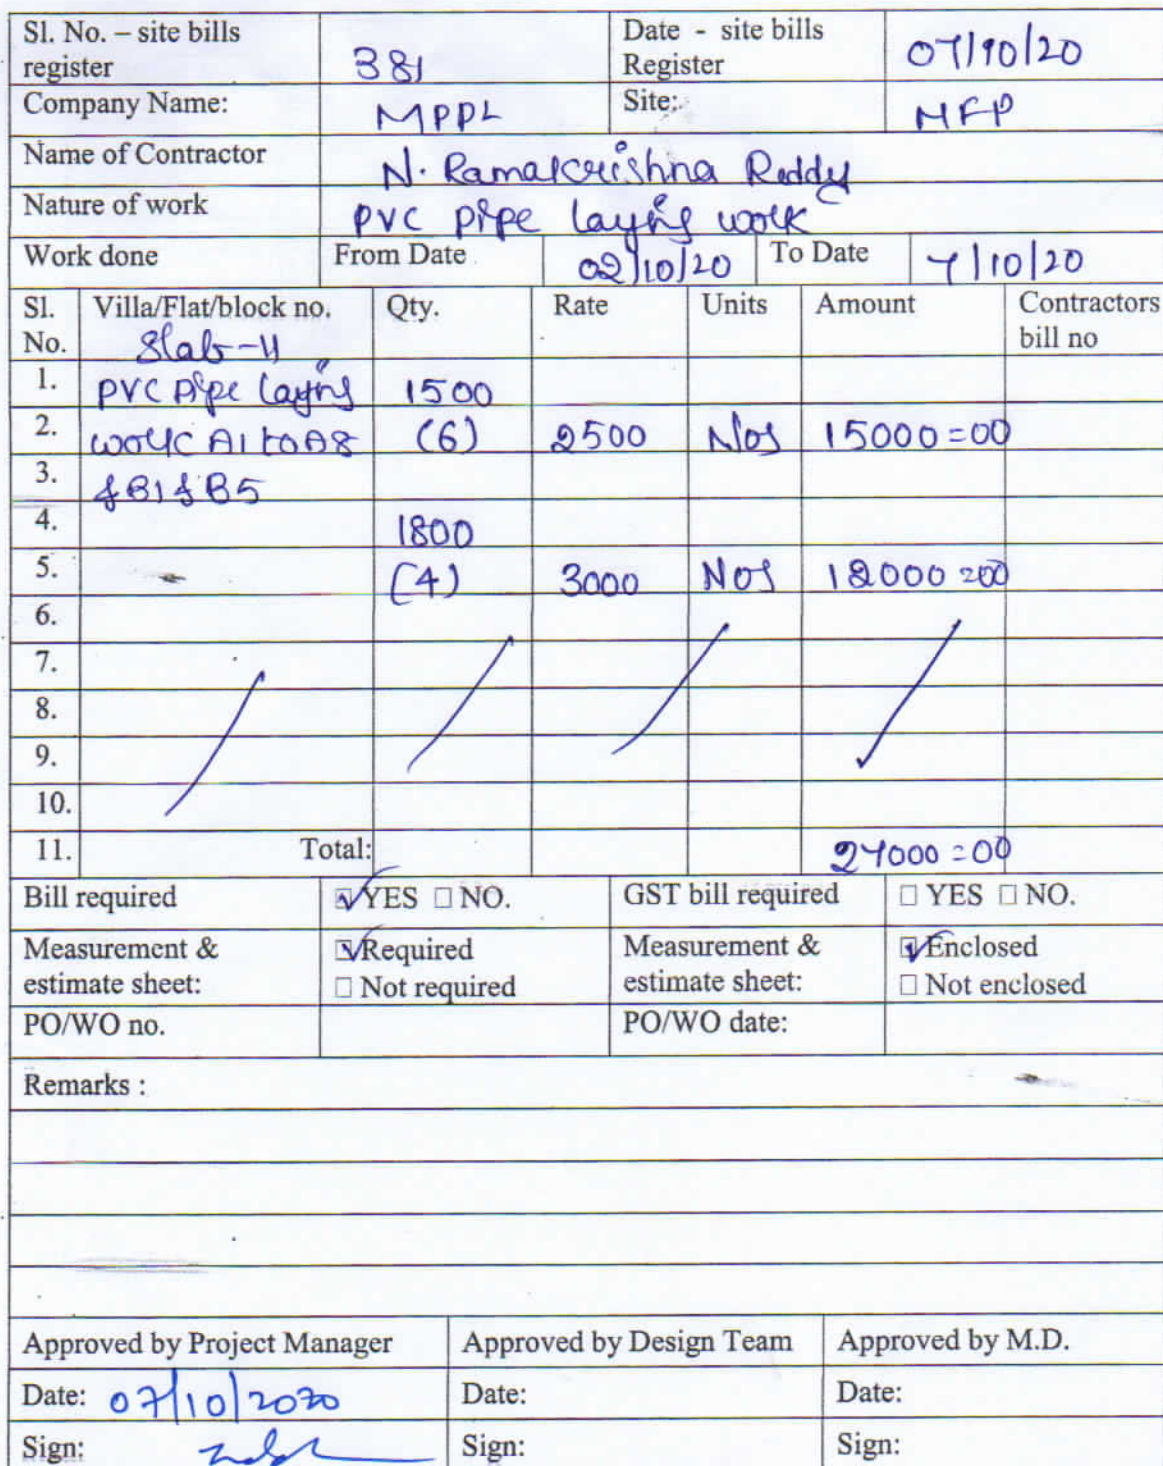 Sl. No. – site bills register 381 Date - site bills Register 07/10/20
Company Name: MPPL Site: MFP
Name of Contractor N. Ramakrishna Reddy
Nature of work PVC pipe laying work
Work done From Date 02/10/20 To Date 7/10/20
Sl. No. Villa/Flat/block no. Qty. Rate Units Amount Contractors bill no
Slab-4
1. PVC pipe laying 1500
2. work A1 to A8 (6) 2500 Nos 15000=00
3. & B1 & B5
4. 1800
5. (4) 3000 Nos 12000=00
6.
7.
8.
9.
10.
11. Total: 27000=00
Bill required ☑ YES □ NO. GST bill required □ YES □ NO.
Measurement & estimate sheet: ☑ Required □ Not required Measurement & estimate sheet: ☑ Enclosed □ Not enclosed
PO/WO no. PO/WO date:
Remarks :
Approved by Project Manager Approved by Design Team Approved by M.D.
Date: 07/10/2020 Date: Date:
Sign: Sign: Sign: